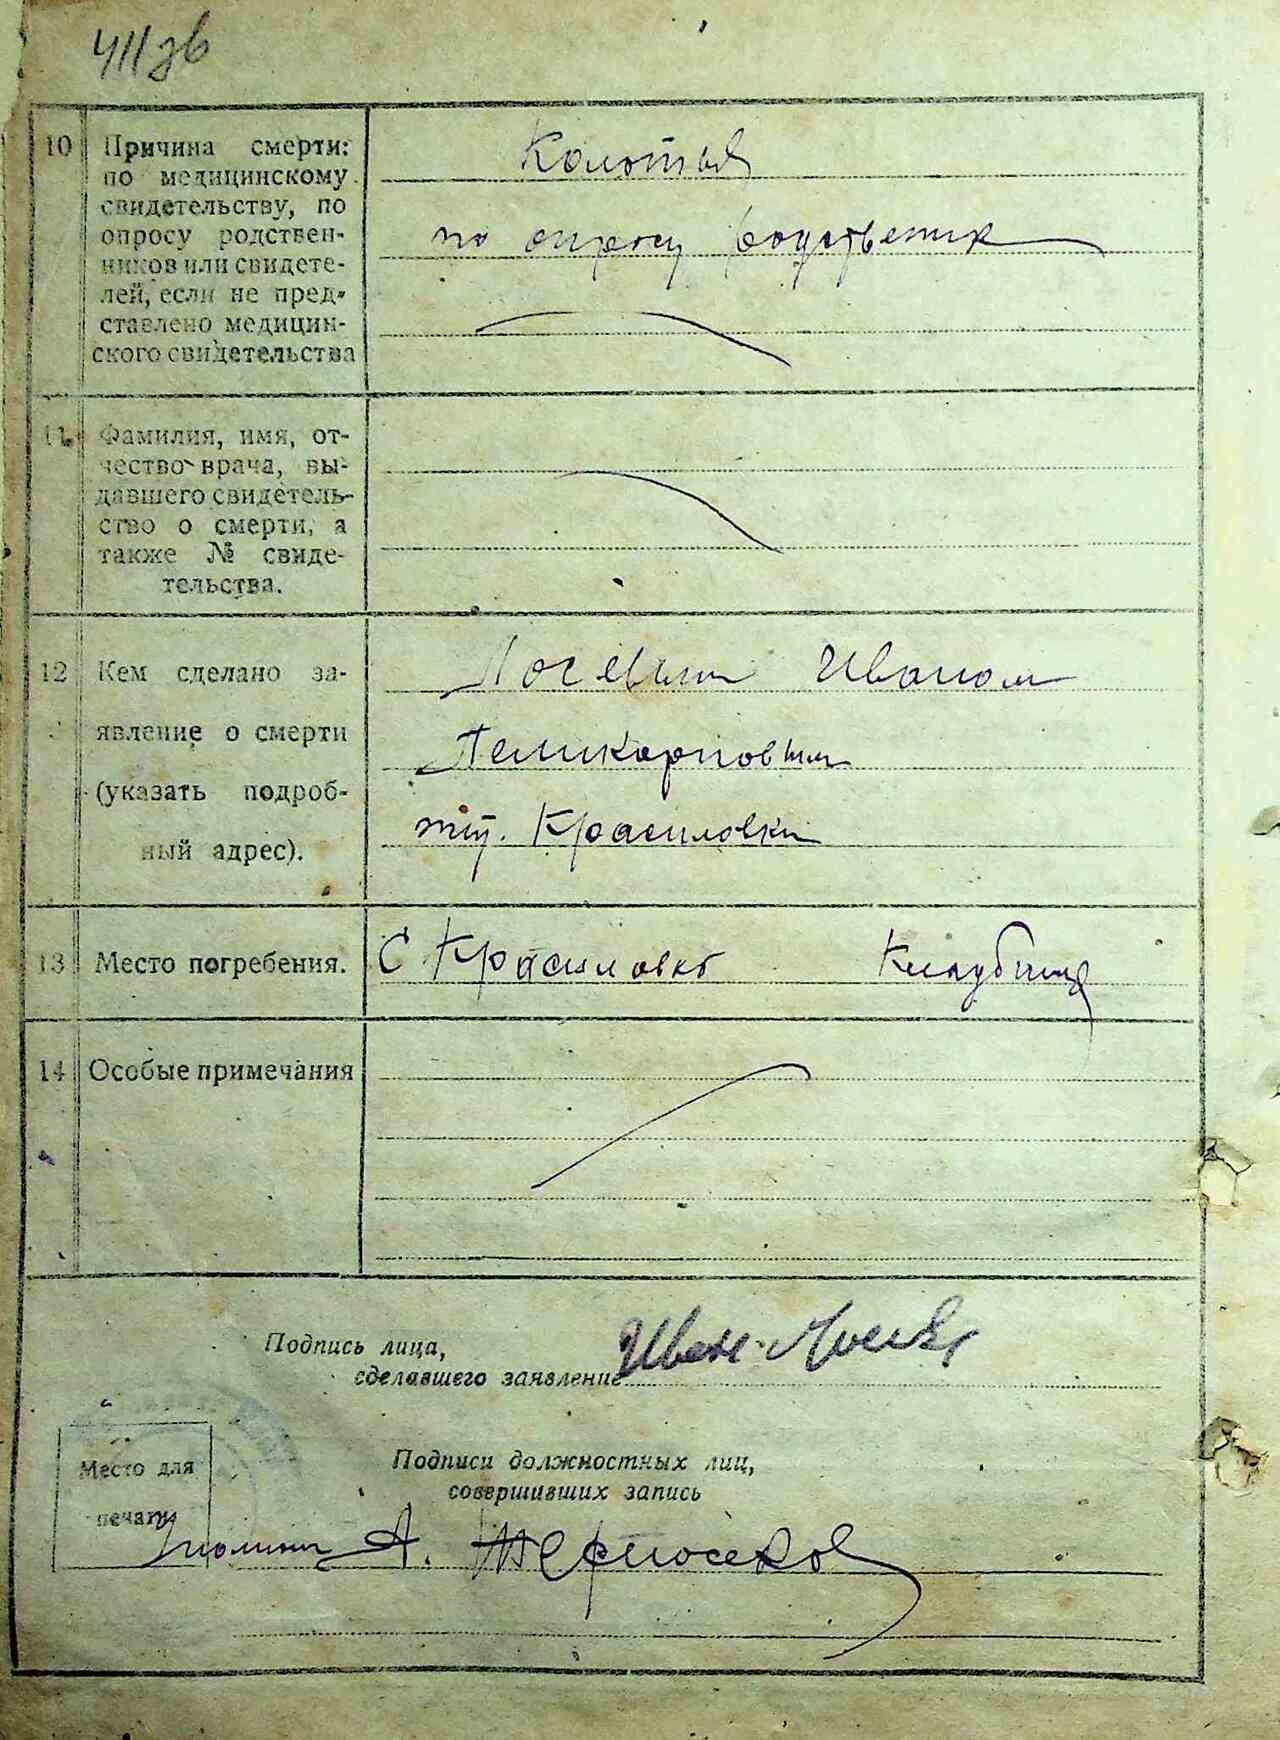 411зв
10 Причина смерти: по медицинскому свидетельству, по опросу родственников или свидетелей, если не представлено медицинского свидетельства
Колотья
по опросу родственик
11. Фамилия, имя, отчество врача, выдавшего свидетельство о смерти, а также № свидетельства.
12 Кем сделано заявление о смерти (указать подробный адрес).
Лосевым Иваном
Поликарповым
жит. Красиловки
13 Место погребения.
С Красиловка Кладбище
14 Особые примечания
Подпись лица,
сделавшего заявление
Иван Лосев
Место для
печати
Подписи должностных лиц,
совершивших запись
А.